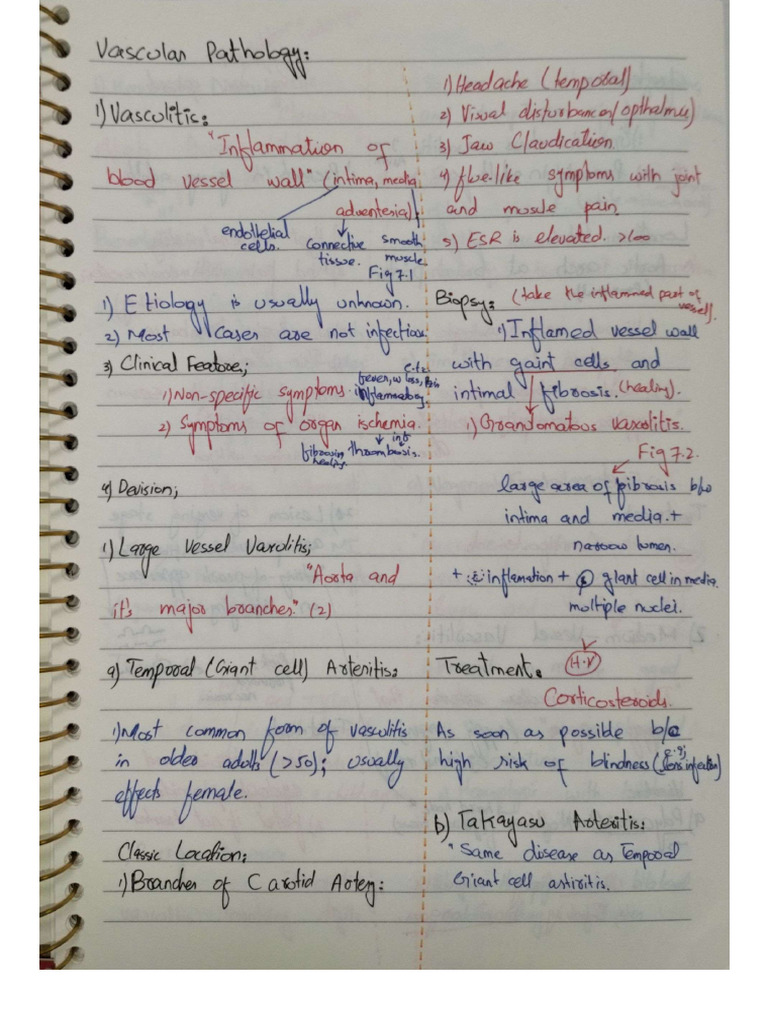 Vascular Pathology:
1) Vasculitis:
"Inflammation of
blood vessel wall" (intima, media
adventesia)
endothelial
cells.
connective
tissue.
smooth
muscle
Fig 7.1
1) Etiology is usually unknown.
2) Most cases are not infectious
3) Clinical Feature;
e.t.c
fever, w loss, Pain
1) Non-specific symptoms. inflammatory.
2) Symptoms of organ ischemia.
fibrosing
healing.
thrombosis.
4) Devision;
1) Large Vessel Vasculitis;
"Aorta and
it's major branches." (2)
a) Temporal (Giant cell) Arteritis:
1) Most common form of vasculitis
in older adults (>50); usually
effects female.
Classic Location;
1) Branches of Carotid Artery:
1) Headache (temporal)
2) Visual disturbance (opthalmus)
3) Jaw Claudication.
4) flue-like symptoms with joint
and muscle pain.
5) ESR is elevated. >100
Biopsy: (take the inflammed part of
vessel).
1) Inflamed vessel wall
with gaint cells and
intimal fibrosis. (healing).
1) Granulomatous vasculitis.
Fig 7.2.
large area of fibrosis b/w
intima and media. +
narrow lumen.
+ inflamation + giant cell in media.
moltiple nuclei.
Treatment. H.Y
Corticosteroids.
As soon as possible b/c
high risk of blindness (
b) Takayasu Arteritis:
"Same disease as Temporal
Giant cell astiritis.